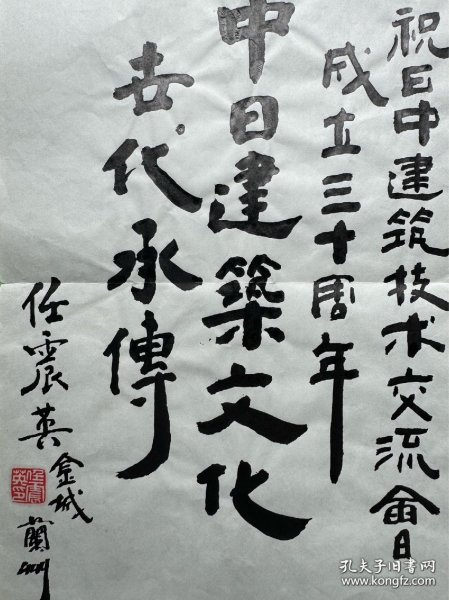 祝日中建筑技术交流會
成立三十周年
中日建築文化
世代承傳
任震英金城蘭州
孔夫子旧书网
www.kongfz.com